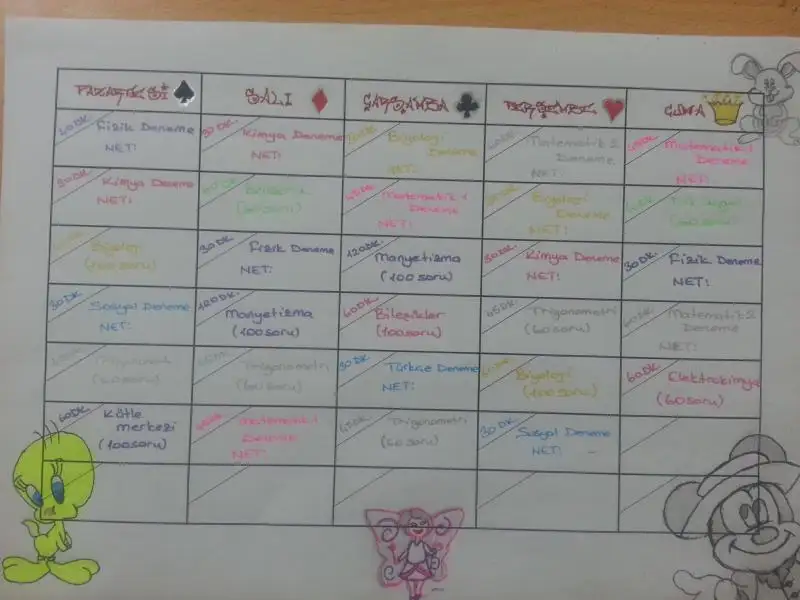 PAZARTESİ
SALI
ÇARŞAMBA
PERŞEMBE
CUMA
Fizik Deneme
NET:
30 DK.
Kimya Deneme
NET:
Biyoloji
Deneme
NET:
Matematik 2
Deneme
NET:
Matematik-1
Deneme
NET:
30 DK.
Kimya Deneme
NET:
(60 soru)
45 DK.
Matematik-1
Deneme
NET:
Biyoloji
Deneme
NET:
Biyoloji
(100 soru)
30 DK.
Fizik Deneme
NET:
120 DK.
Manyetizma
(100 soru)
30 DK.
Kimya Deneme
NET:
30 DK.
Fizik Deneme
NET:
30 DK.
Sosyal Deneme
NET:
120 DK.
Manyetizma
(100 soru)
60 DK.
Bileşikler
(100 soru)
45 DK.
Trigonometri
(60 soru)
Matematik 2
Deneme
NET:
Trigonometri
(60 soru)
Trigonometri
(60 soru)
30 DK.
Türkçe Deneme
NET:
Biyoloji
(100 soru)
60 DK.
Elektrokimya
(60 soru)
60 DK.
Kütle
merkezi
(100 soru)
Matematik-1
Deneme
NET:
45 DK.
Trigonometri
(60 soru)
30 DK.
Sosyal Deneme
NET: